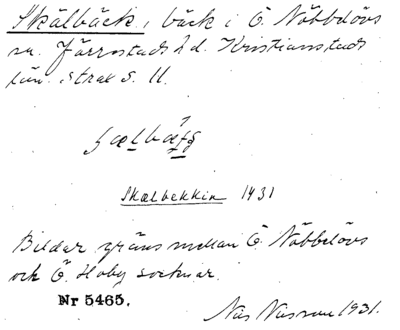 Skälbäck, bäck i Ö. Nöbbelövs
sn. Järrestads hd. Kristianstads
län. strax S. 11.
Skælbekkin 1431
Bildar gräns mellan Ö. Nöbbelövs
och Ö. Hoby socknar.
Nr 5465.
1931.